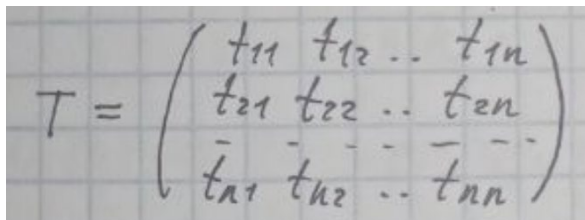 t11 t12 .. t1n
T = ( t21 t22 .. t2n )
- - - - - - -
tn1 tn2 .. tnn